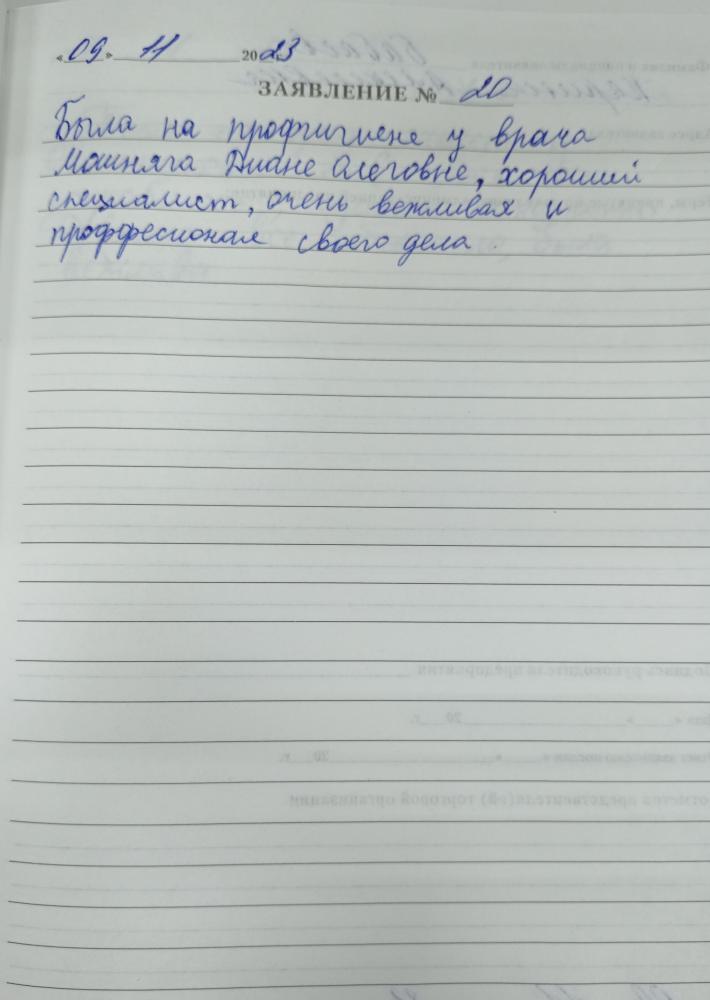 «09» 11 2023
ЗАЯВЛЕНИЕ № 20
Была на профгигиене у врача
Мошняга Диане Олеговне, хороший
специалист, очень вежливах и
проффесионал своего дела.